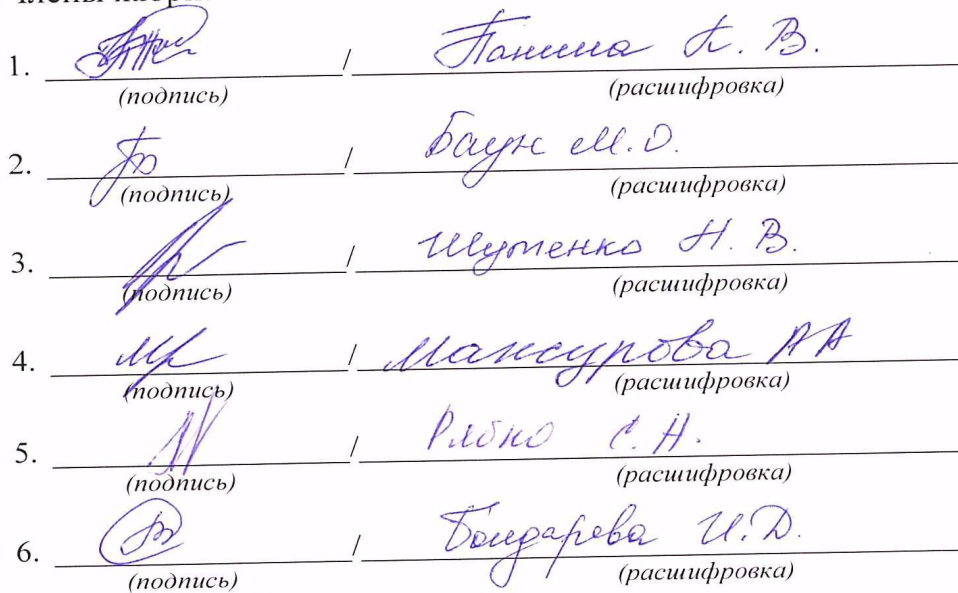 Члены жюри:
1. / Панина К. В.
(подпись) (расшифровка)
2. / Баун М.О.
(подпись) (расшифровка)
3. / Шутенко Н. В.
(подпись) (расшифровка)
4. / Мансурова АА
(подпись) (расшифровка)
5. / Рябко С.Н.
(подпись) (расшифровка)
6. / Бондарева И.Д.
(подпись) (расшифровка)